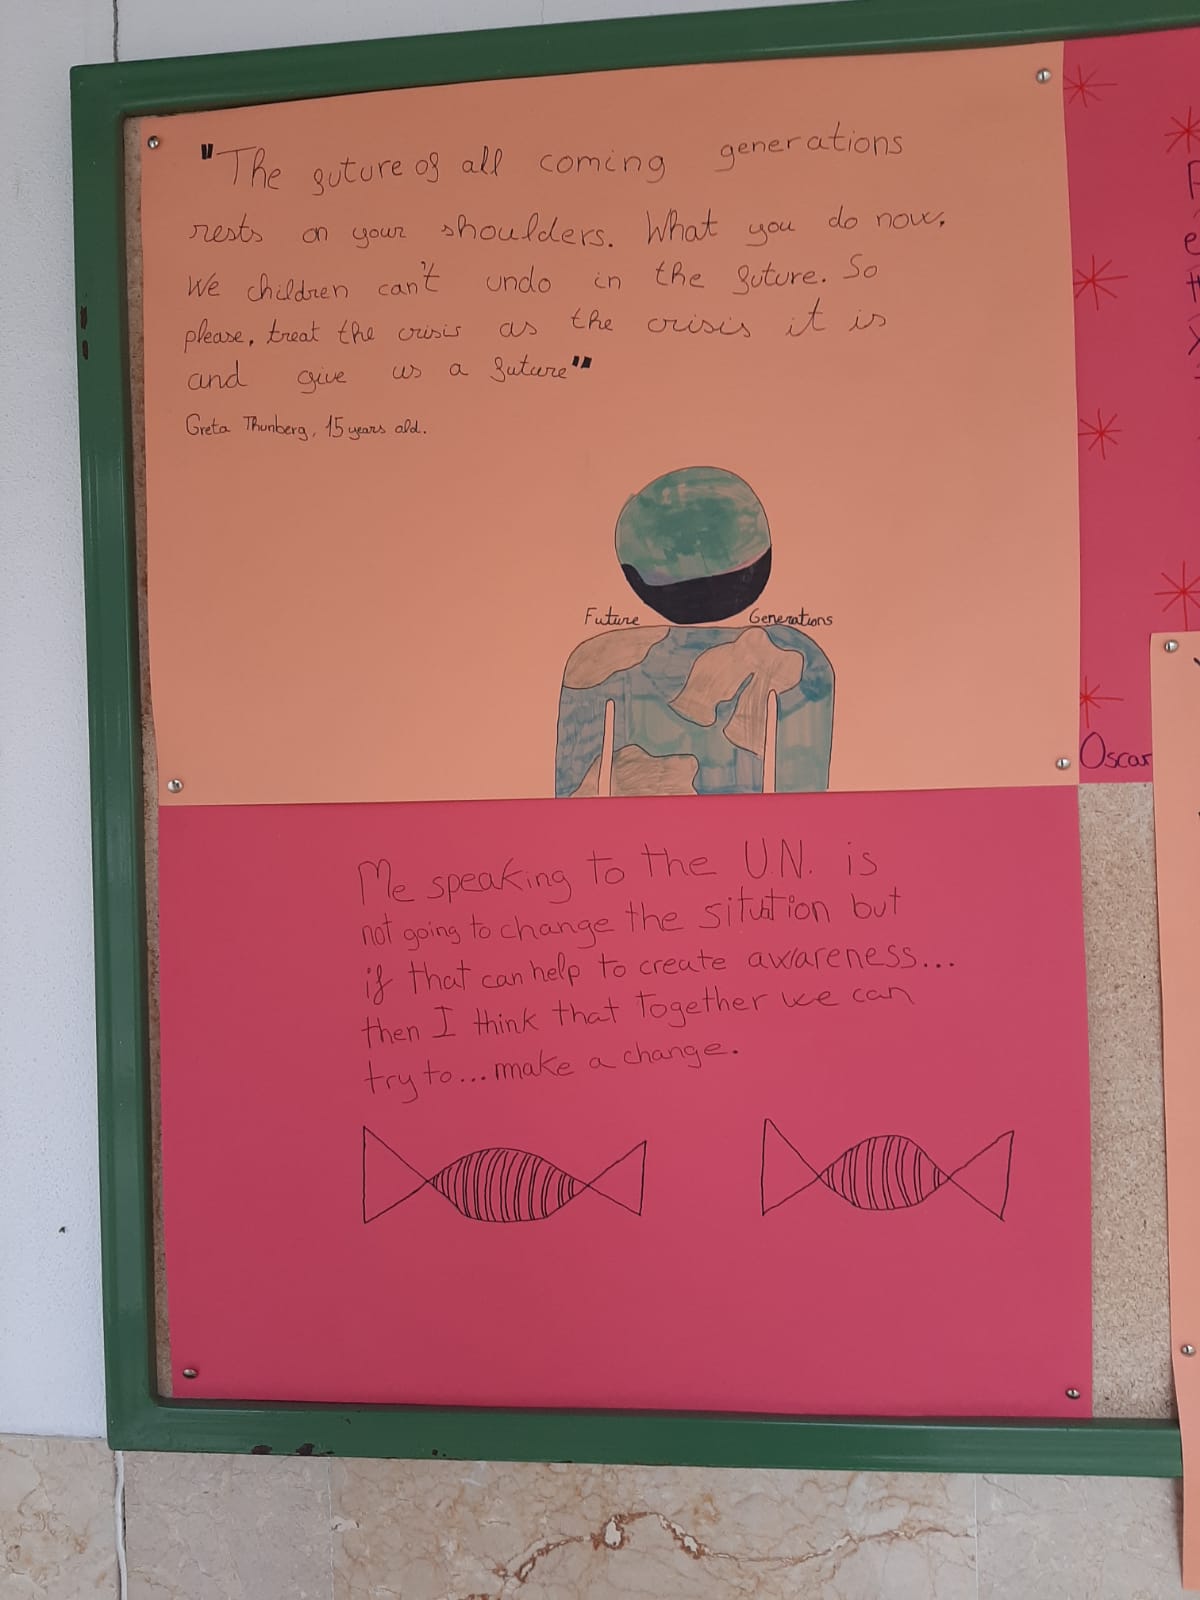 "The future of all coming generations
rests on your shoulders. What you do now,
We children can't undo in the future. So
please, treat the crisis as the crisis it is
and give us a future"
Greta Thunberg, 15 years old.
Future Generations
Oscar
Me speaking to the U.N. is
not going to change the situation but
if that can help to create awareness...
then I think that together we can
try to... make a change.